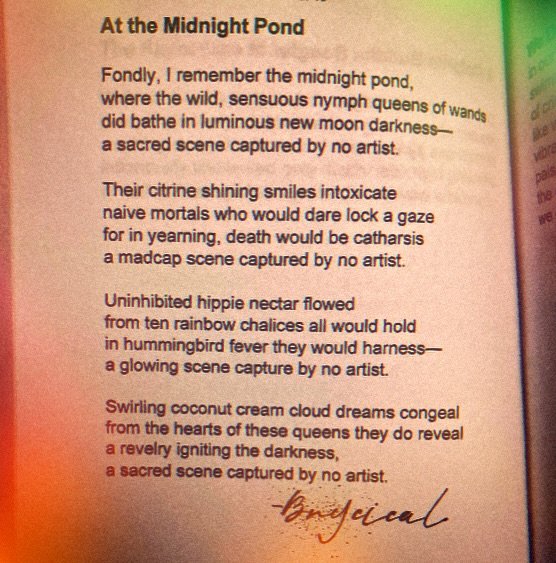 At the Midnight Pond
Fondly, I remember the midnight pond,
where the wild, sensuous nymph queens of wands
did bathe in luminous new moon darkness—
a sacred scene captured by no artist.
Their citrine shining smiles intoxicate
naive mortals who would dare lock a gaze
for in yearning, death would be catharsis
a madcap scene captured by no artist.
Uninhibited hippie nectar flowed
from ten rainbow chalices all would hold
in hummingbird fever they would harness—
a glowing scene capture by no artist.
Swirling coconut cream cloud dreams congeal
from the hearts of these queens they do reveal
a revelry igniting the darkness,
a sacred scene captured by no artist.